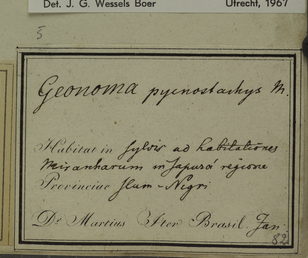 Det. J. G. Wessels Boer Utrecht, 1967
5
Geonoma pycnostachys M.
Habitat in sylvis ad habitationes
Miranharum in Japurá regione
Provinciae flum-Nigri
Dr. Martius Iter Brasil. Jan.
82